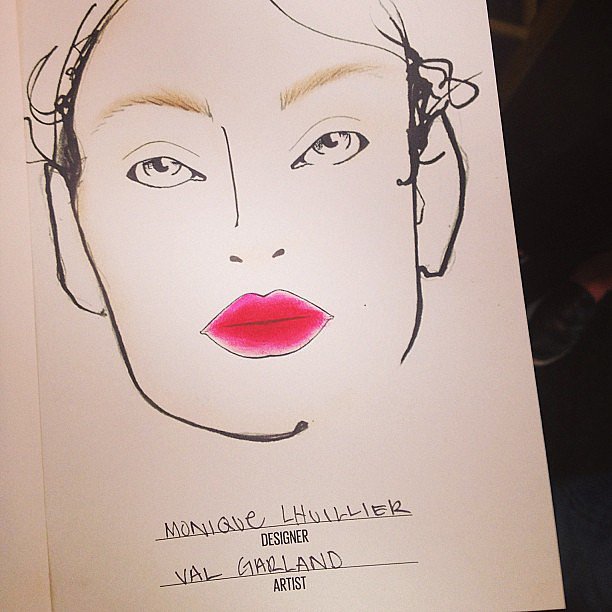 MONIQUE LHUILLIER
DESIGNER
VAL GARLAND
ARTIST